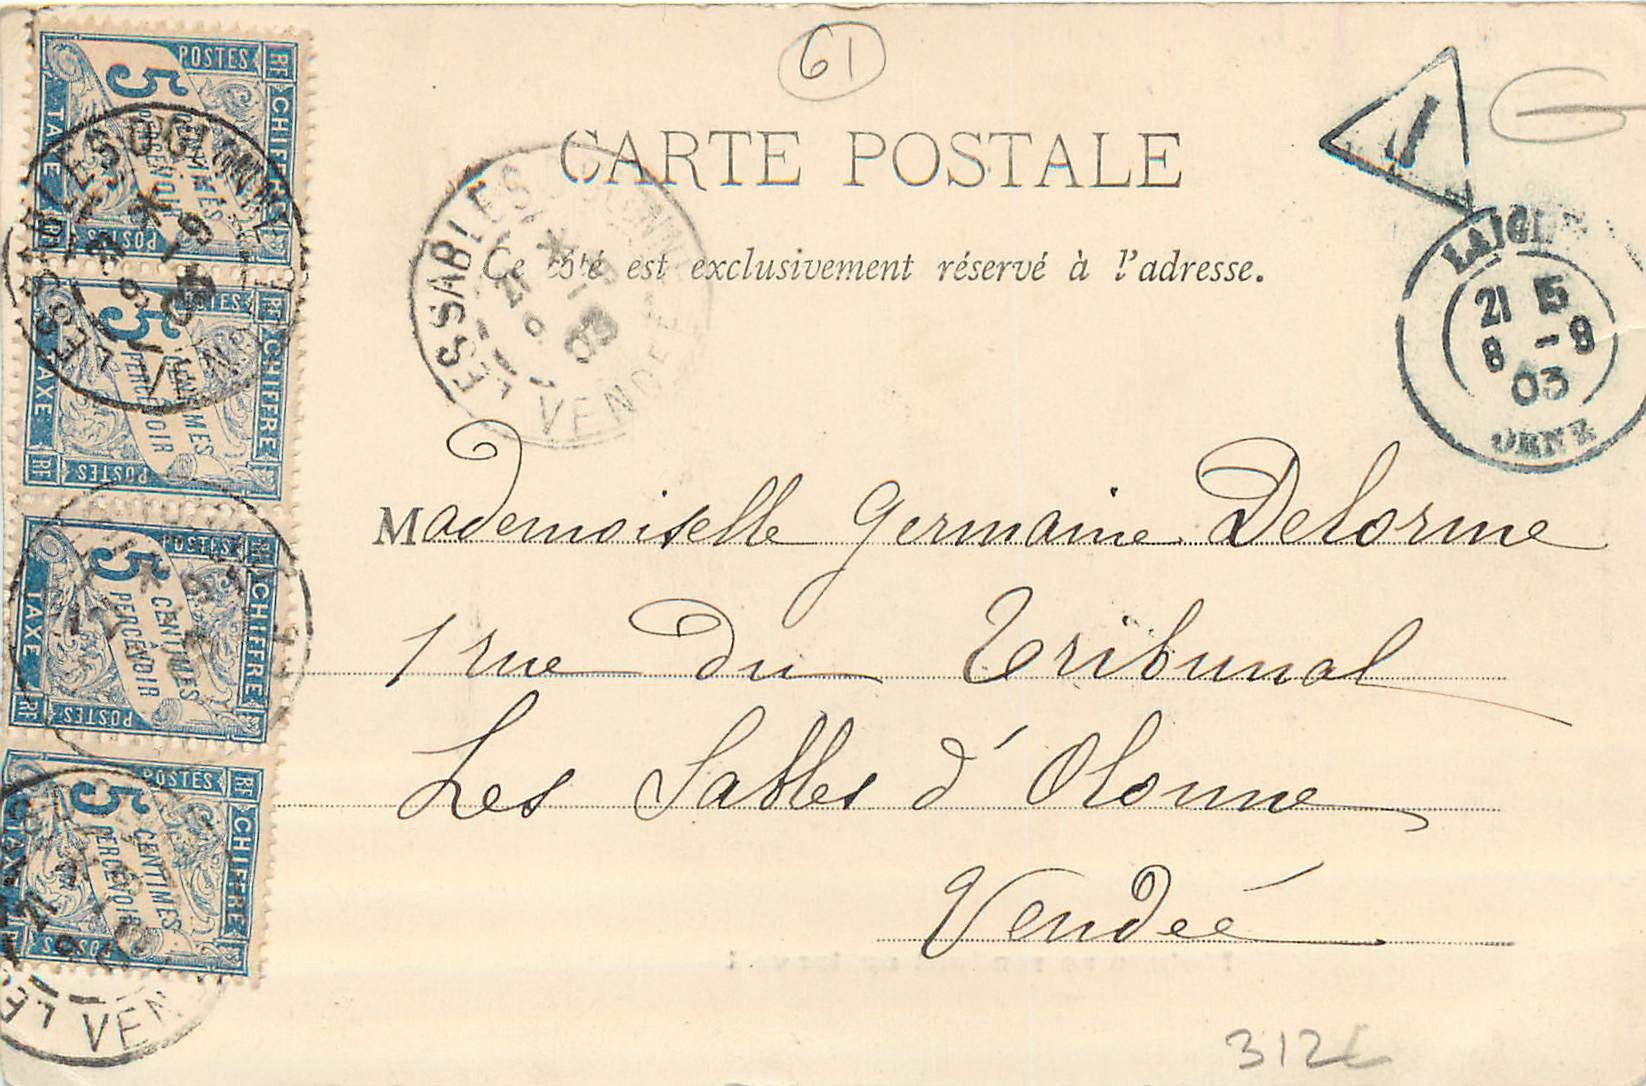 61
CARTE POSTALE
Ce côté est exclusivement réservé à l'adresse.
T
LAIGLE
21 E
8 -9
03
ORNE
LES SABLES D'OLONNE
03
VENDEE
Mademoiselle Germaine Delorme
1 rue du Tribunal
Les Sables d'Olonne
Vendée
312
POSTES RF
5 CENTIMES
À PERCEVOIR
CHIFFRE
TAXE
POSTES RF
5 CENTIMES
À PERCEVOIR
CHIFFRE
TAXE
RF POSTES
POSTES RF
5 CENTIMES
À PERCEVOIR
CHIFFRE
TAXE
RF POSTES
POSTES RF
5 CENTIMES
À PERCEVOIR
CHIFFRE
TAXE
POSTES
LES SABLES D'OLONNE
VEN